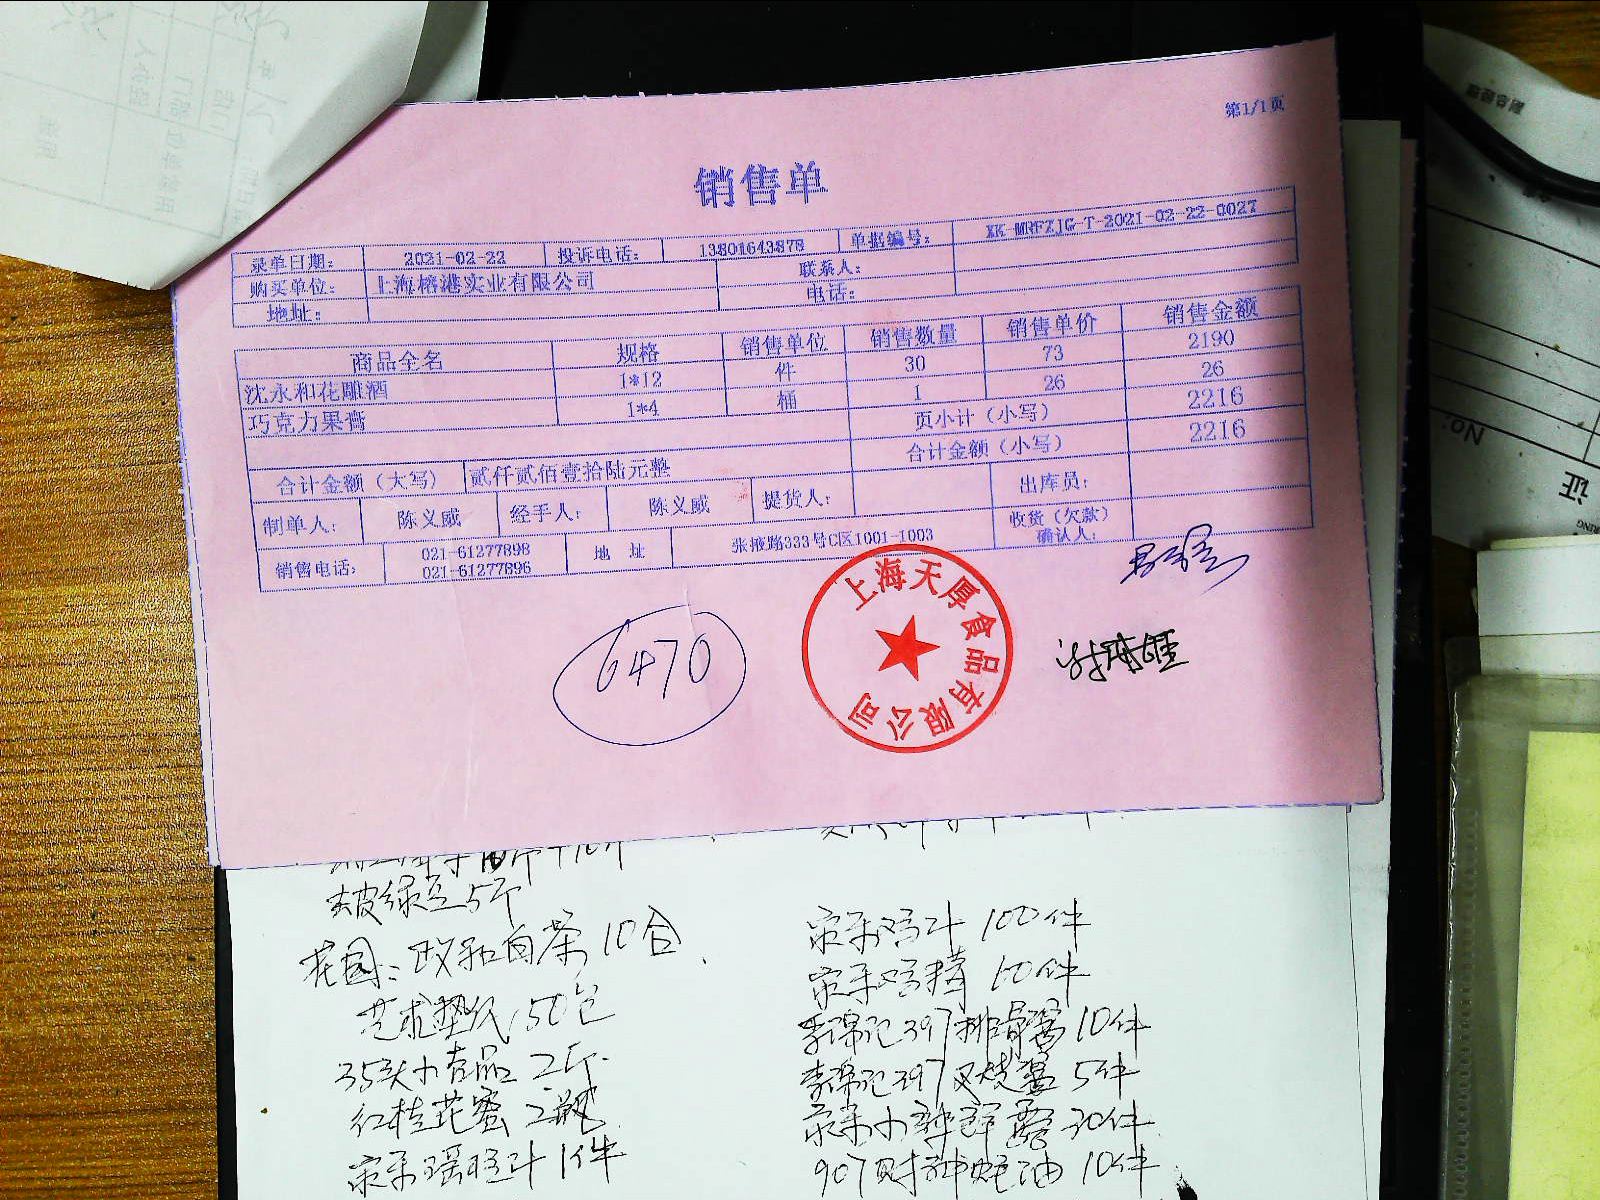 第1/1页
销售单
录单日期： 2021-02-22 投诉电话： 13801643878 单据编号： XK-MRFZJG-T-2021-02-22-0027
购买单位： 上海榕港实业有限公司 联系人：
地址： 电话：
商品全名 规格 销售单位 销售数量 销售单价 销售金额
沈永和花雕酒 1*12 件 30 73 2190
巧克力果膏 1*4 桶 1 26 26
页小计（小写） 2216
合计金额（大写） 贰仟贰佰壹拾陆元整 合计金额（小写） 2216
制单人： 陈义威 经手人： 陈义威 提货人： 出库员：
销售电话： 021-61277898 021-61277896 地 址 张掖路333号C区1001-1003 收货（欠款）确认人：
6470
上海天厚食品有限公司
去皮绿豆5斤
花园：政和白茶10合
艺术垫纸50包
35头小吉品2斤
红桂花蜜2瓶
家乐鸡汁100件
家乐鸡精10件
李锦记397排骨酱10件
李锦记397叉烧酱5件
907财神蚝油10件
副总经理
No:
证